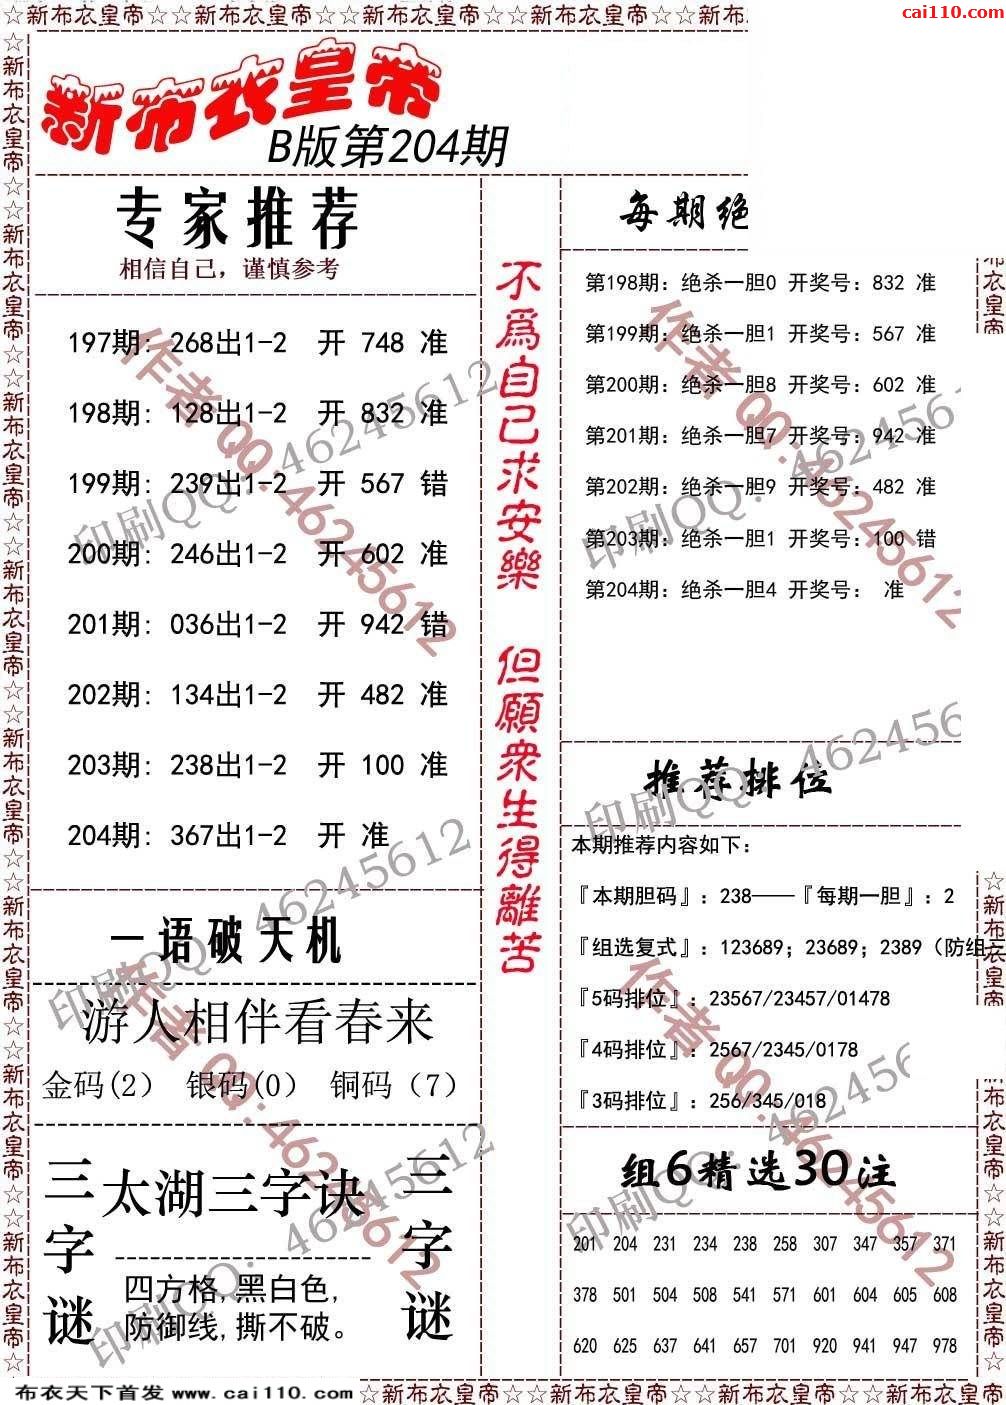 ☆新布衣皇帝☆新布衣皇帝☆新布衣皇帝☆新布衣皇帝☆新布衣皇帝☆新布
cai110.com
新布衣皇帝
B版第204期
专家推荐
相信自己，谨慎参考
197期: 268出1-2 开 748 准
198期: 128出1-2 开 832 准
199期: 239出1-2 开 567 错
200期: 246出1-2 开 602 准
201期: 036出1-2 开 942 错
202期: 134出1-2 开 482 准
203期: 238出1-2 开 100 准
204期: 367出1-2 开 准
一语破天机
游人相伴看春来
金码(2） 银码(0） 铜码（7）
三字谜
太湖三字诀
四方格,黑白色,
防御线,撕不破。
三字谜
不爲自己求安樂
但願衆生得離苦
每期绝
第198期: 绝杀一胆0 开奖号: 832 准
第199期: 绝杀一胆1 开奖号: 567 准
第200期: 绝杀一胆8 开奖号: 602 准
第201期: 绝杀一胆7 开奖号: 942 准
第202期: 绝杀一胆9 开奖号: 482 准
第203期: 绝杀一胆1 开奖号: 100 错
第204期: 绝杀一胆4 开奖号: 准
推荐排位
本期推荐内容如下：
『本期胆码』: 238——『每期一胆』: 2
『组选复式』: 123689; 23689; 2389（防组三
『5码排位』: 23567/23457/01478
『4码排位』: 2567/2345/0178
『3码排位』: 256/345/018
组6精选30注
201 204 231 234 238 258 307 347 357 371
378 501 504 508 541 571 601 604 605 608
620 625 637 641 657 701 920 941 947 978
作者QQ:46245612
印刷QQ: 46245612
布衣天下首发 www.cai110.com
☆新布衣皇帝☆新布衣皇帝☆新布衣皇帝☆新布衣皇帝☆